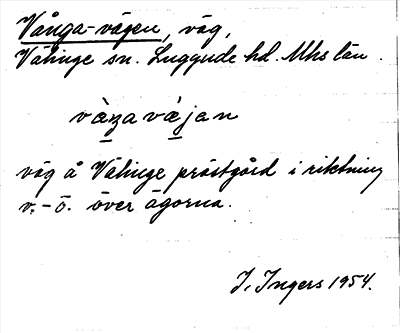 Vånga-vägen, väg,
Välinge sn. Luggude hd. Mhs län.
våŋavä̀jan
väg å Välinge prästgård i riktning
v.-ö. över ägorna.
I. Ingers 1954.